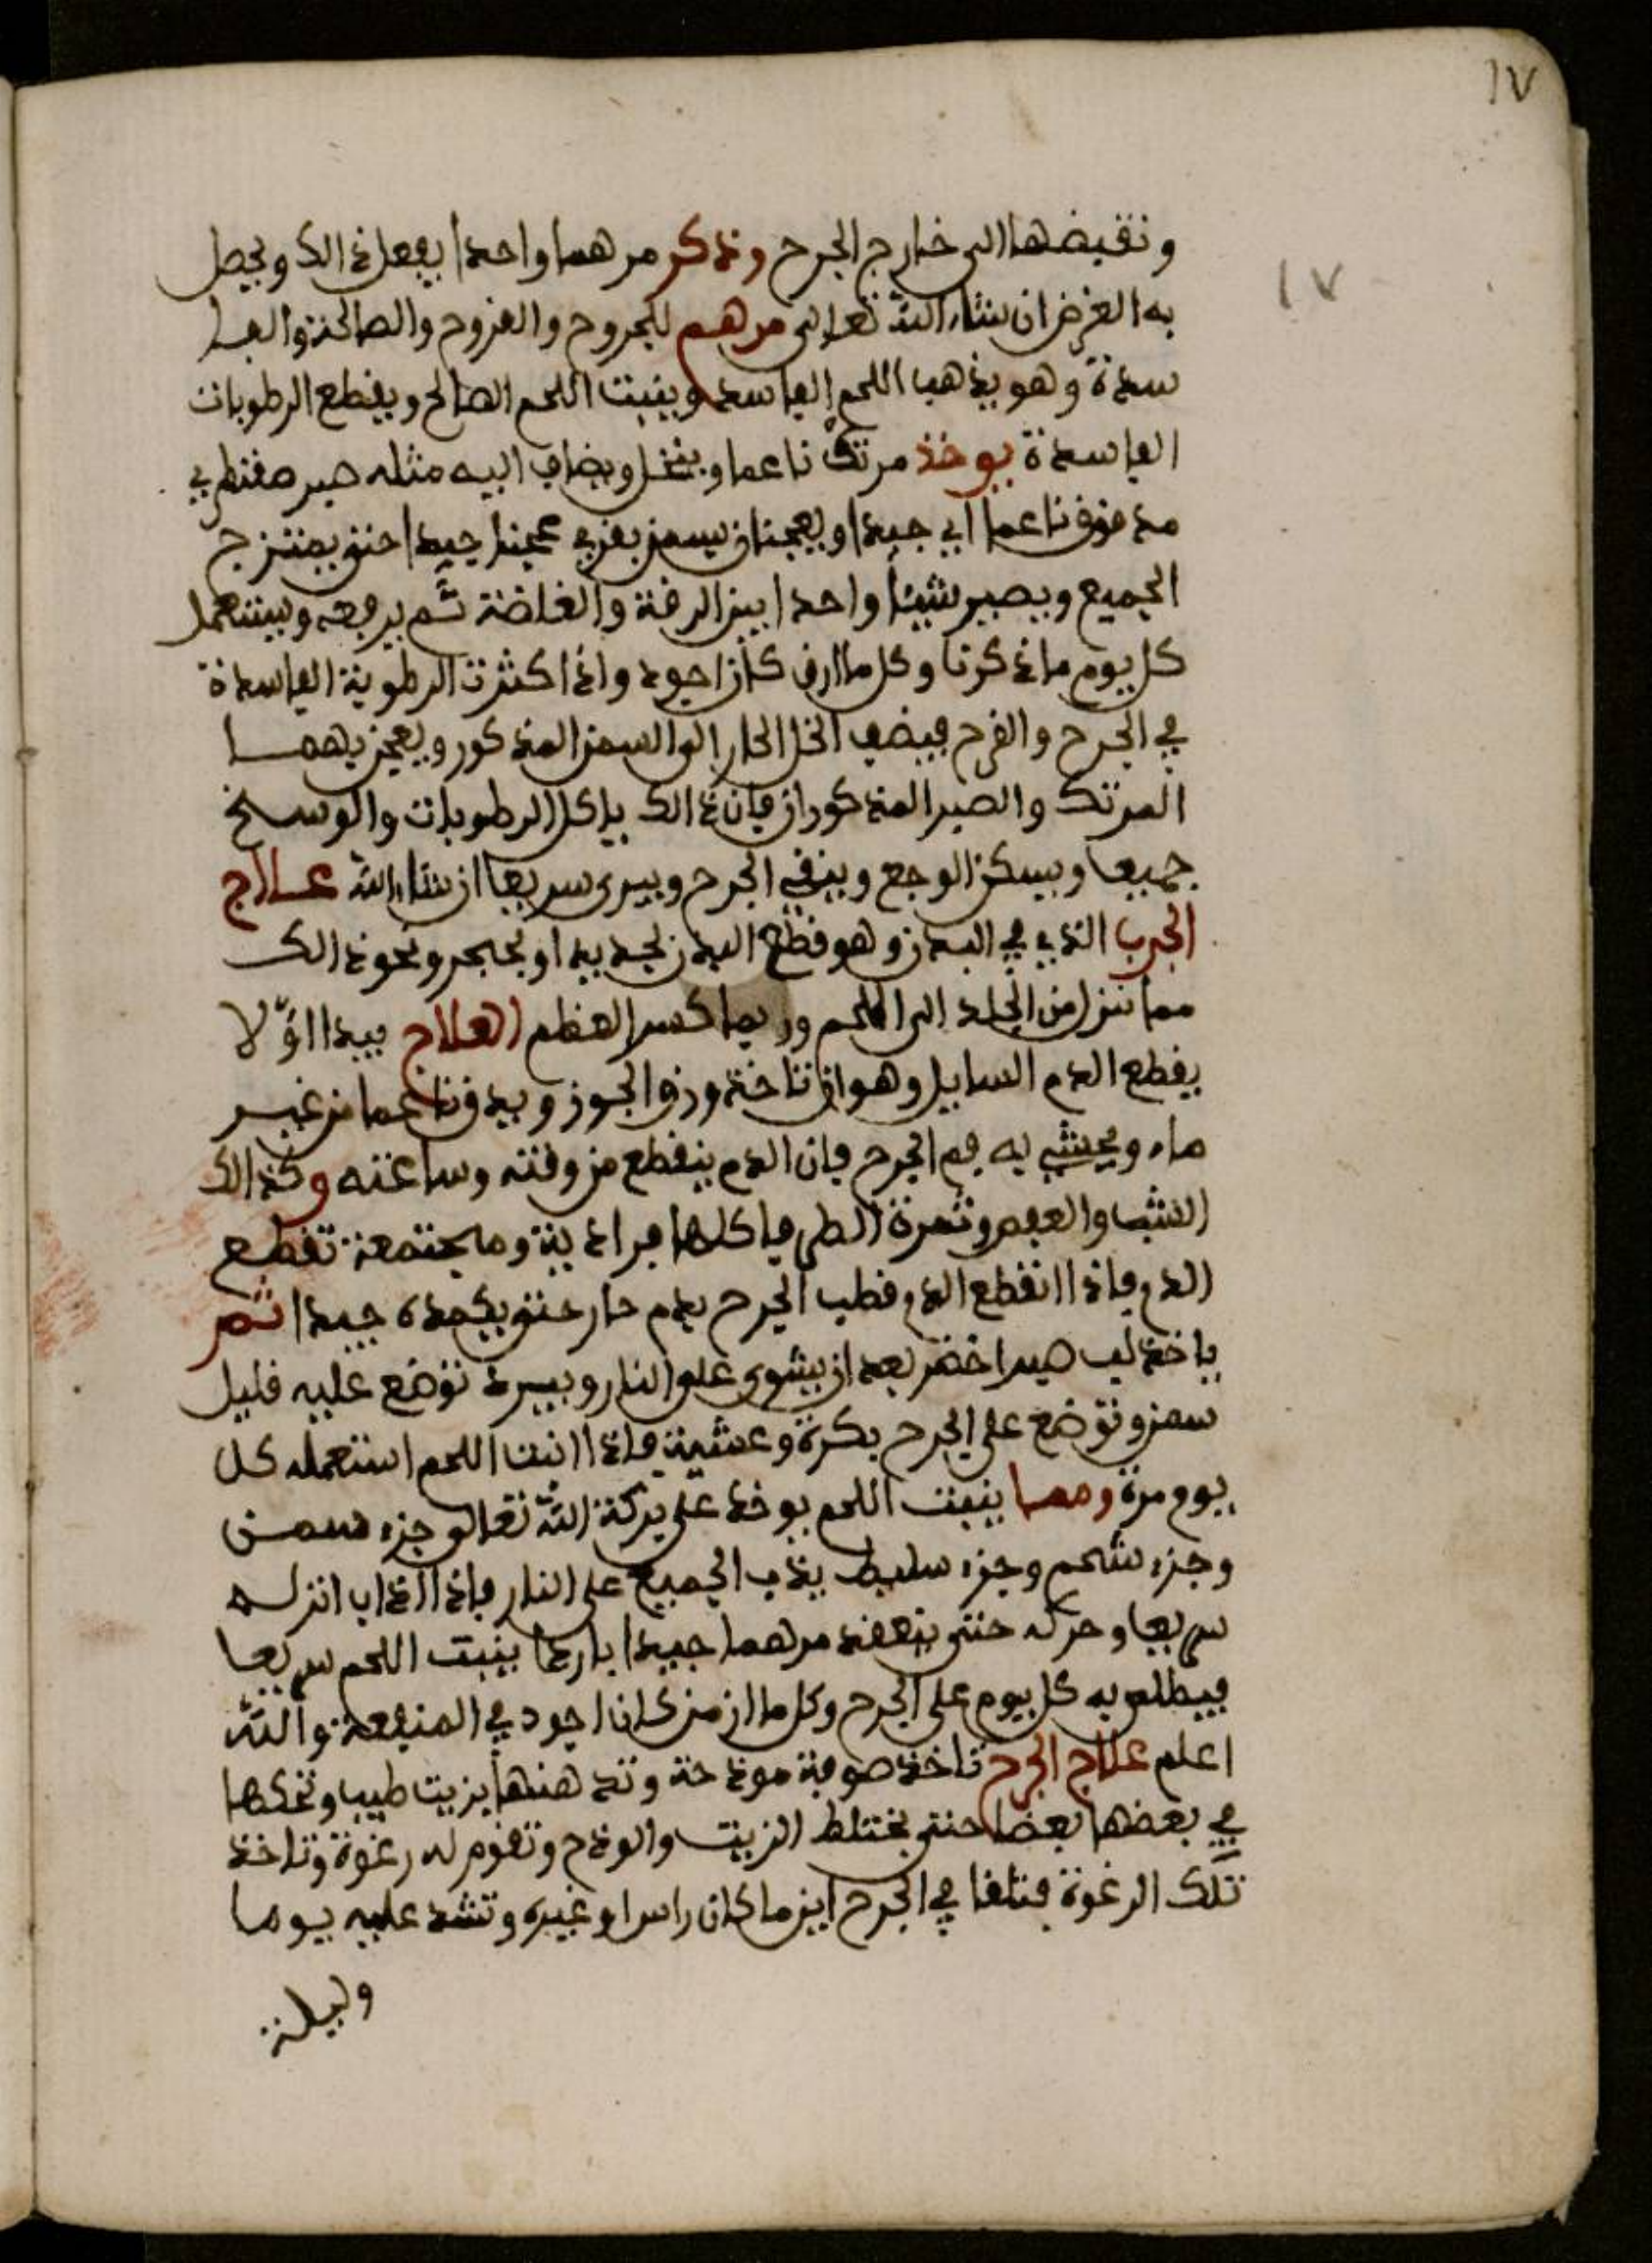 ١٧
١٧
وتقبضها الى خارج الجرح ونذكر مرهما واحدا يفعل ذالك ويحصل
به الغرض ان شاء الله تعالى مرهم للجروح والقروح والصالحة والفا
سدة وهو يذهب اللحم الفاسد وينبت اللحم الصالح ويقطع الرطوبات
الفاسدة يوخذ مرتك ناعما وينخل ويضاف اليه مثله صبر صقطري
مدقوق ناعما جيدا ويعجنان بسمن بقري عجينا جيدا حتى يمتزج
الجميع ويصير شيئا واحدا بين الرقة والغلاضة ثم يرفعه ويستعمل
كل يوم ماذكرنا وكل ما ارق كان اجود واذا كثرت الرطوبة الفاسدة
في الجرح والقرح فيضف الخل الحار الى السمن المذكور ويعجن بهما
المرتك والصبر المذكوران فان ذالك ياكل الرطوبات والوسخ
جميعا ويسكن الوجع وينقي الجرح ويبرى سريعا ان شاء الله عـلاج
الجرب الذي في البدن وهو قطع البدن بحديد او بحجر ونحو ذالك
مما نزل من الجلد الى اللحم وربما كسر العظم العلاج يبدا اوّلا
يقطع الدم السايل وهو ان تاخذ ورق الجوز ويدق ناعما من غير
ماء ويحشى به فم الجرح فان الدم ينقطع من وقته وساعته وكذالك
الشب والعفص وثمرة الطرفا كلها فرادية ومجتمعة تقطع
الدم فاذا انقطع الدم فطلب الجرح بدم حار حتى يكمده جيدا ثم
ياخذ لب صبر اخضر بعد ان يشوى على النار ويبرد توضع عليه قليل
سمن وتوضع على الجرح بكرة وعشية فاذا انبت اللحم استعمله كل
يوم مرة ومما ينبت اللحم يوخذ على بركة الله تعالى جزء سمن
وجزء شحم وجزء سليط يذب الجميع على النار فاذا ذاب انزله
سريعا وحركه حتى ينعقد مرهما جيدا باردا ينبت اللحم سريعا
فيطلى به كل يوم على الجرح وكل ما ازمن كان اجود في المنفعة والله
اعلم علاج الجرح تاخذ صوفة موذحة وتدهنها بزيت طيب وتحكها
في بعضها بعضا حتى يختلط الزيت والوذح وتقوم له رغوة وتاخذ
تلك الرغوة فتلقا في الجرح اين ما كان راس او غيره وتشد عليه يوما
وليلة